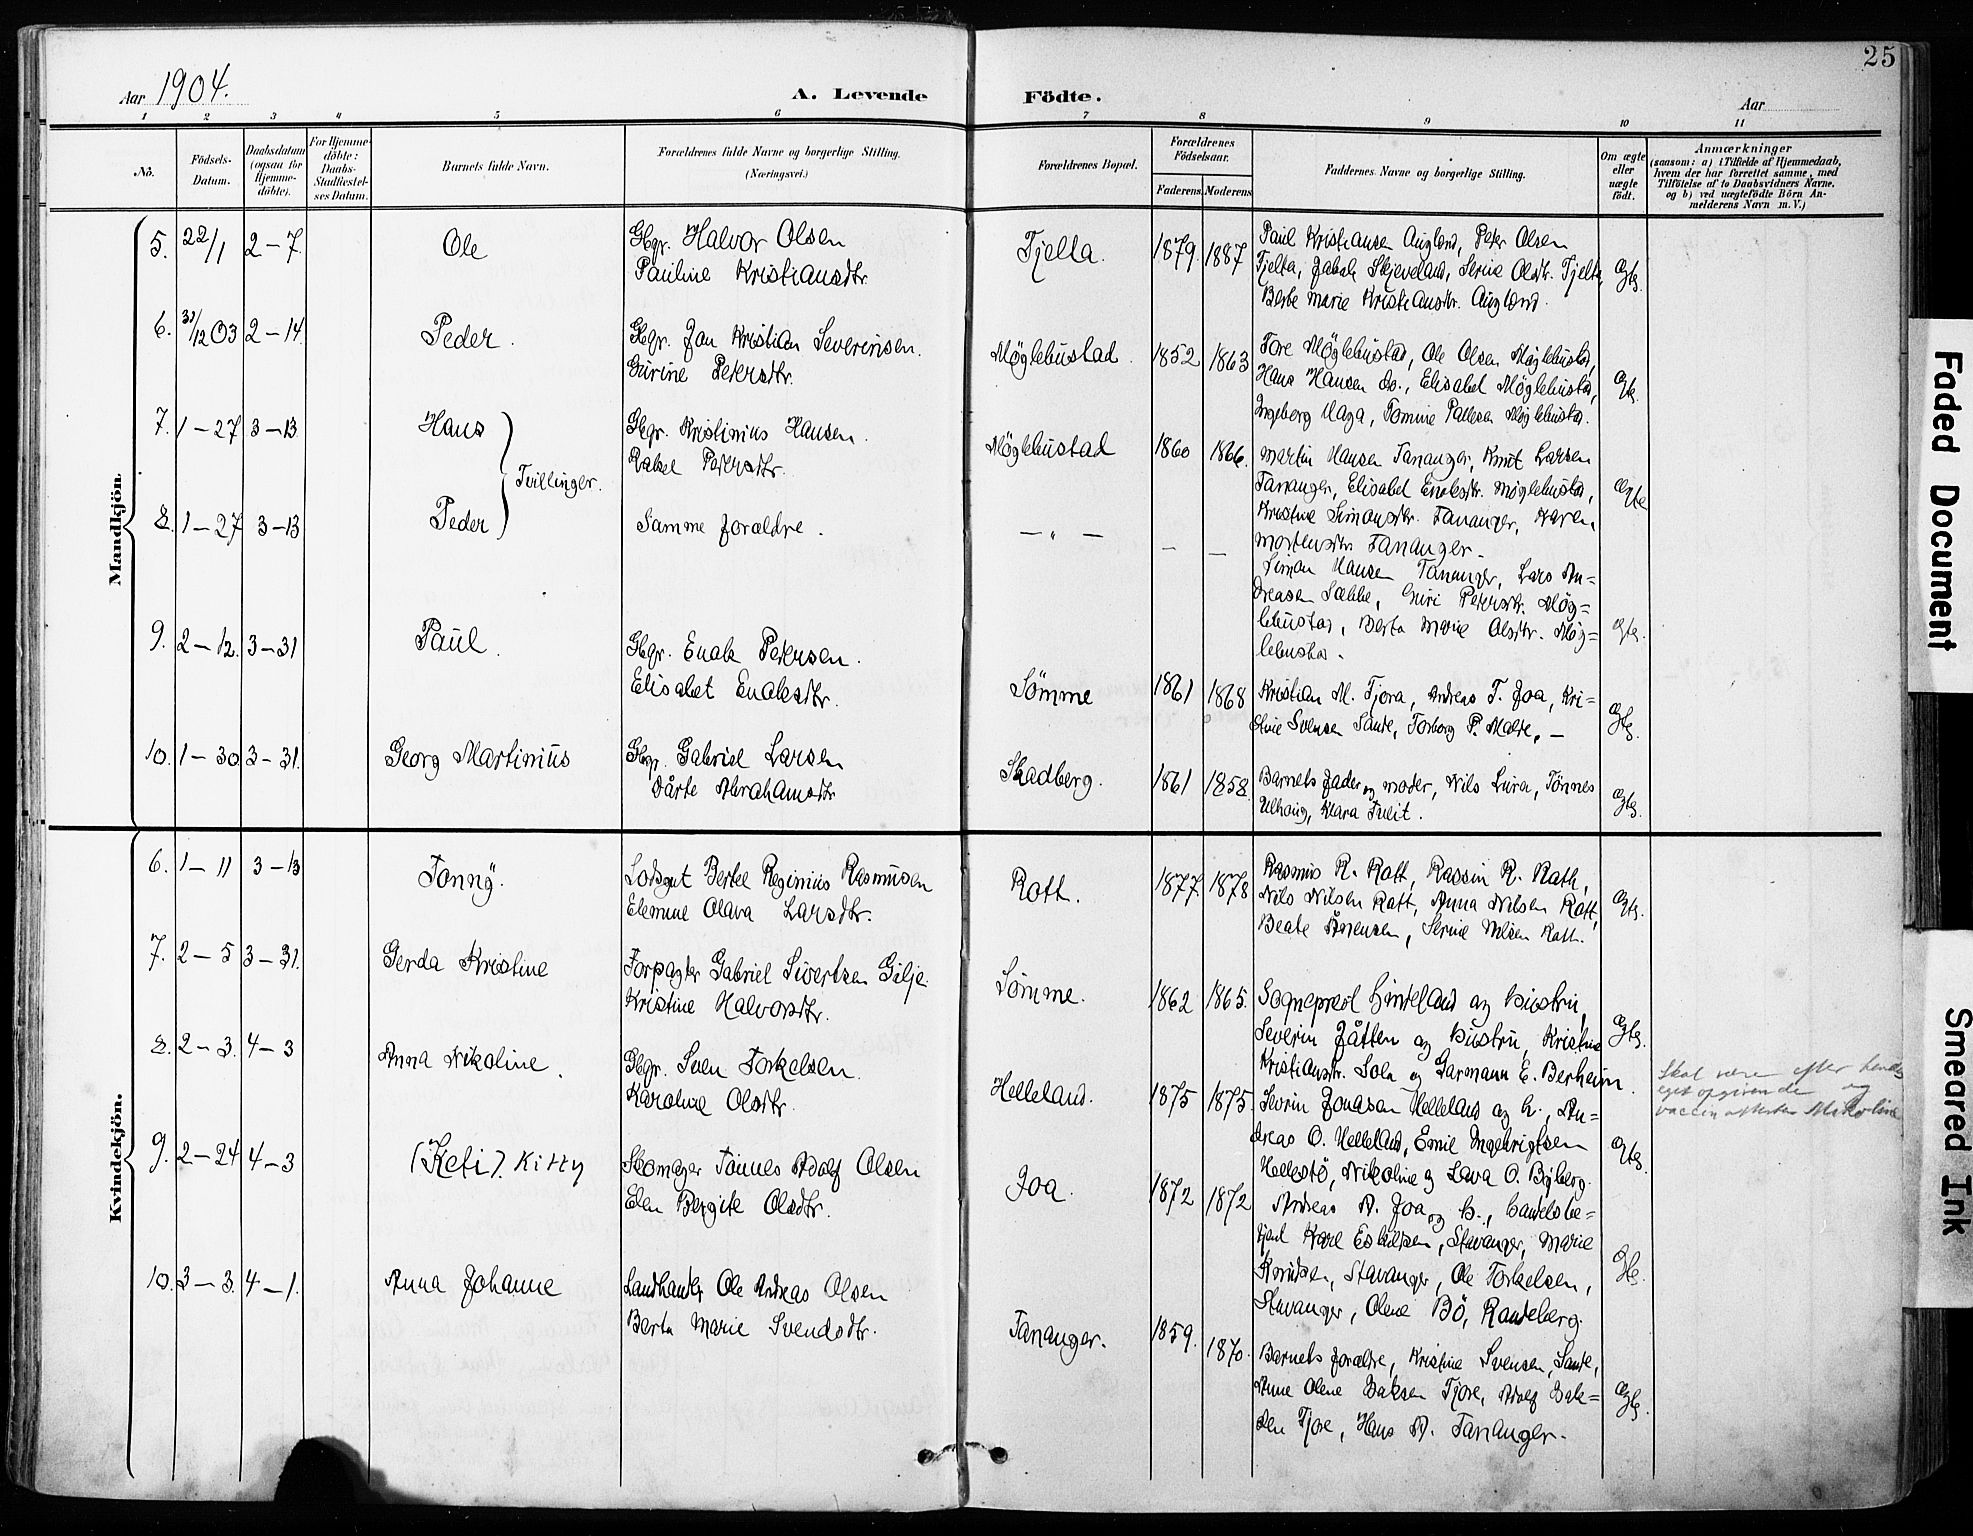 25
Aar 1904.
A. Levende Födte.
Aar
1 2 3 4 5 6 7 8 9 10 11
No.
Födsels-
Datum.
Daabsdatum
(ogsaa for
Hjemme-
döbte).
For Hjemme-
döbte:
Daabs-
Stadfæstel-
ses Datum.
Barnets fulde Navn.
Forældrenes fulde Navne og borgerlige Stilling.
(Næringsvei.)
Forældrenes Bopæl.
Forældrenes
Födselsaar.
Faderens Moderens
Faddernes Navne og borgerlige Stilling.
Om ægte
eller
uægte
födt.
Anmærkninger
(saasom: a) i Tilfælde af Hjemmedaab,
hvem der har forrettet samme, med
Tilföielse af to Daabsvidners Navne.
og b) ved uægtefödte Börn An-
melderens Navn m. V.)
Mandkjön.
5. 22/1 2-7. Ole
Gbgr. Halvor Olsen
Pauline Kristiansdtr.
Fjella. 1879. 1887
Paul Kristiansen Augland, Peter Olsen
Tjelta, Jakob Skjeveland, Serine Olsdtr. Tjelta,
Berte Marie Kristiansdtr. Augland.
Ægte.
6. 31/12 03 2-14. Peder.
Gbgr. Jon Kristian Severinsen.
Gurine Petersdtr.
Möglebustad. 1852 1863
Tore Möglebustad, Ole Olsen Möglebustad,
Hans Hansen do., Elisabet Möglebustad,
Ingeborg Haga, Tomine Pallesen Möglebustad.
Ægte.
7. 1-27 3-13. Hans
Tvillinger.
Gbgr. Kristinius Hansen.
Rakel Petersdtr.
Möglebustad 1860 1866.
Martin Hansen Tananger, Knut Larsen
Tananger, Elisabet Enoksdtr. Möglebustad,
Kristine Simonsdtr. Tananger, Karen
Mortensdtr. Tananger.
Ægte
8. 1-27 3-13 Peder
Samme forældre.
— " — — —
Simon Hansen Tananger, Lars An=
dreasen Sælke, Guri Petersdtr. Mög=
lebustad, Berta Marie Olsdtr. Mög=
lebustad.
Ægte.
9. 2-12. 3-31 Paul.
Gbgr. Enok Petersen.
Elisabet Enoksdtr.
Sömme 1861 1868
Kristian M. Tjora, Andreas T. Joa, Kri=
stine Svensen Sande, Torborg P. Malde, —
Ægte.
10. 1-30 3-31. Georg Martinius
Gbgr. Gabriel Larsen
Dårte Abrahamsdtr
Skadberg. 1861 1858.
Barnets fader og moder, Nils Lura, Tönnes
Ulhaug, Klara Tveit.
Ægte.
Kvindekjön.
6. 1-11 3-13 Fanny.
Lodsgut Bertel Reginius Rasmusen
Elemine Olava Larsdtr.
Rott. 1877. 1878
Rasmus R. Rott, Rassin R. Roth,
Nils Nilsen Rott, Anna Nilsen Rott,
Beate Sörensen, Serine Nilsen Rott.
Ægte.
7. 2-5 3-31. Gerda Kristine
Forpagter Gabriel Sivertsen Gilje
Kristine Halvorsdtr.
Sömme. 1862 1865.
Sogneprest Hinteland og hustru,
Severin Jåtten og hustru, Kristine
Kristiansdtr. Sola og Garmann E. Berheim.
Ægte.
8. 2-3. 4-3 Anna Nikoline.
Gbgr. Sven Torkelsen.
Karoline Olsdtr.
Helleland. 1875 1875.
Sevrin Jonassen Helleland og h., An=
dreas O. Helleland, Emil Ingebrigtsen
Hellestö, Nikoline og Lava O. Byberg.
Ægte.
Skal være efter hendes
eget opgivende og
vaccinattesten Mikoline
9. 2-24 4-3 (Keti). Kitty
Skomager Tönnes Adolf Olsen
Elen Bergite Olsdtr.
Joa. 1872 1872
Andreas A. Joa og h., handelsbe=
tjent Karl Eskildsen, Stavanger, Marie
Knudsen, Stavanger, Ole Torkelsen,
Stavanger, Olene Bö, Randeberg.
Ægte.
10. 3-3. 4-1. Anna Johanne
Landhandler Ole Andreas Olsen
Berta Marie Svendsdtr.
Tananger. 1859. 1870.
Barnets forældre, Kristine Svensen, Sande,
Anne Olene Baksen Tjore, Adolf Bak=
sen Tjore, Hans A. Tananger.
Ægte.
Faded Document
Smeared Ink